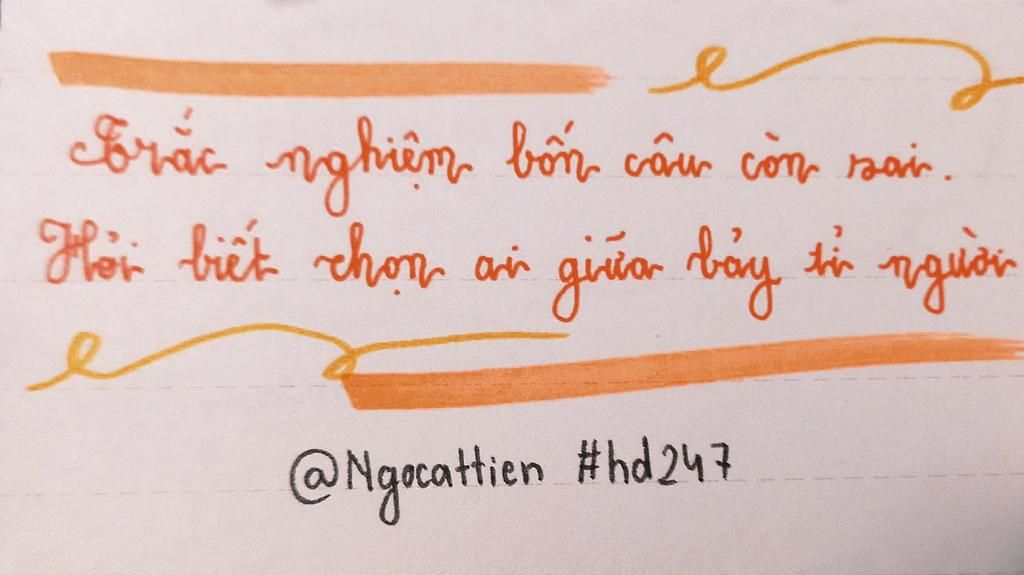 Trắc nghiệm bốn câu còn sai.
Hỏi biết chọn ai giữa bảy tỉ người
@Ngocattien #hd247